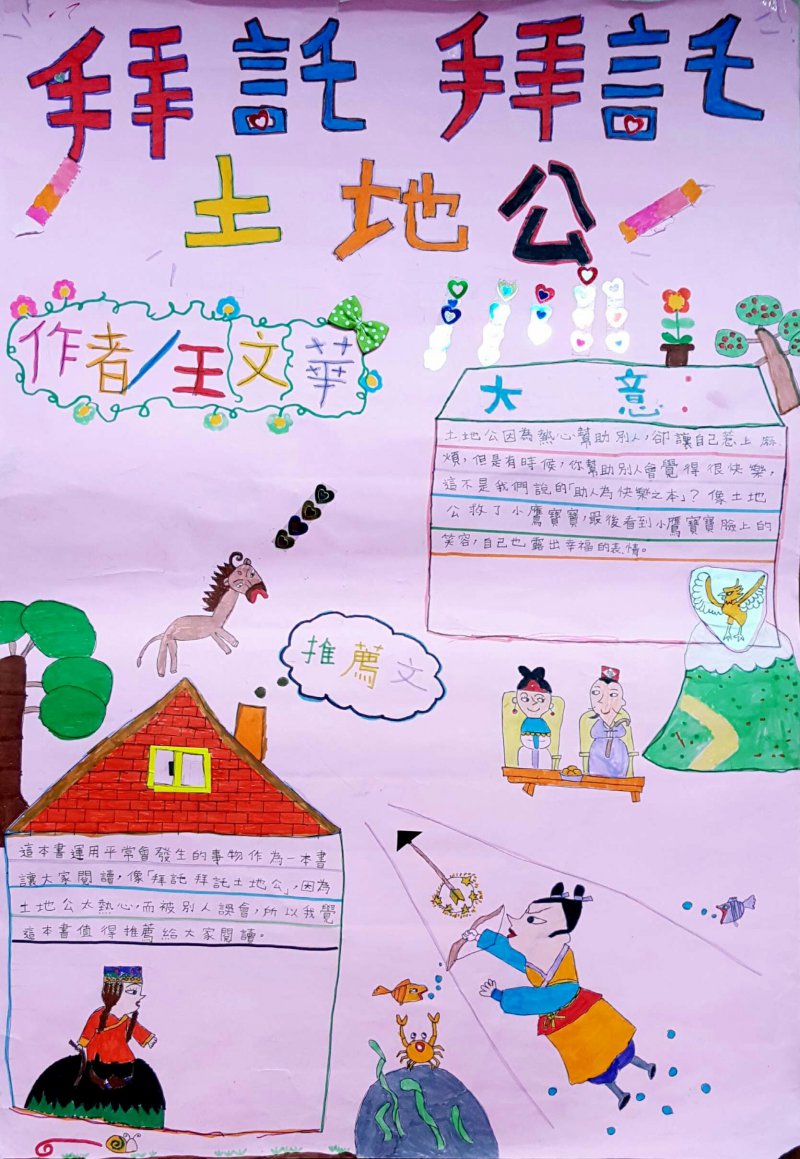 拜託 拜託
土地公
作者/王文華
大意:
土地公因為熱心幫助別人,卻讓自己惹上麻
煩,但是有時候,你幫助別人會覺得很快樂,
這不是我們說的「助人為快樂之本」?像土地
公救了小鷹寶寶,最後看到小鷹寶寶臉上的
笑容,自己也露出幸福的表情。
推薦文
這本書運用平常會發生的事物作為一本書
讓大家閱讀,像「拜託 拜託土地公」,因為
土地公太熱心,而被別人誤會,所以我覺
這本書值得推薦給大家閱讀。